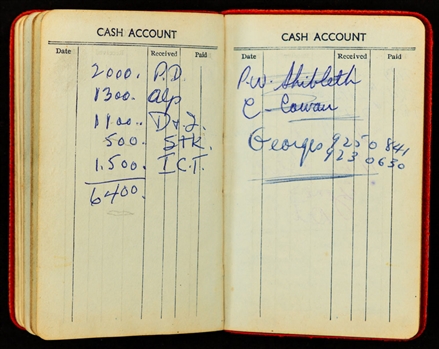 CASH ACCOUNT
Date Received Paid
2000. P.D.
1300. alp
1100.. D & J.
500. Stk.
1.500. I.C.T.
6400.
CASH ACCOUNT
Date Received Paid
P.W. Shibleth
C - Cowan
Georges 9250841
923 0630